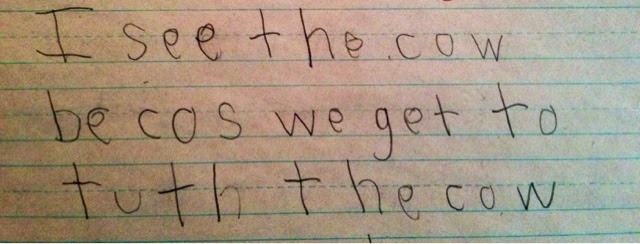 I see the cow
becos we get to
tuth the cow